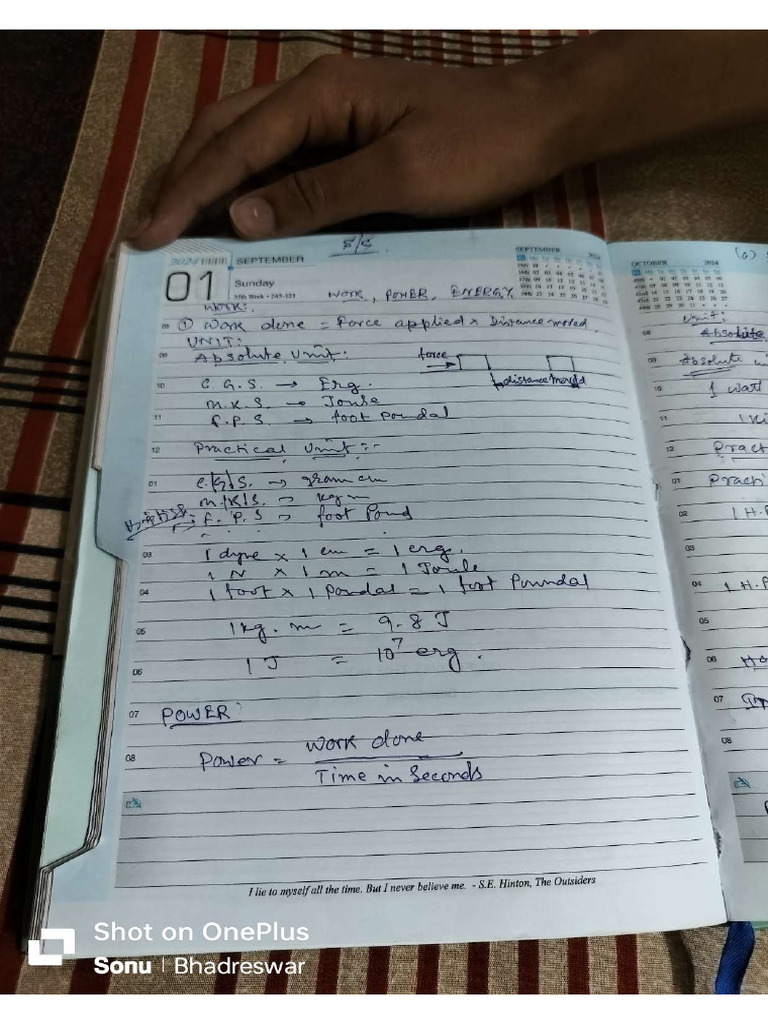 5/5
2024 SEPTEMBER
SEPTEMBER 2024
01
Sunday
35th Week • 245-121
WORK, POWER, ENERGY
WORK:
08 ① Work done = Force applied × Distance moved.
UNIT:
09 Absolute Unit:
force
distance moved
10 C.G.S. → Erg.
M.K.S. → Joule
11 F.P.S. → foot poundal
12 Practical Unit:-
01 C.G.S. → gram cm
M.K.S. → kg m
F.P.S → foot Pound
03 1 dyne × 1 cm = 1 erg.
1 N × 1 m = 1 Joule
04 1 foot × 1 Pondal = 1 foot Poundal
05 1 kg. m = 9.8 J
06 1 J = 10⁷ erg.
07 POWER:
08 Power = Work done
Time in Seconds
I lie to myself all the time. But I never believe me. - S.E. Hinton, The Outsiders
(a)
OCTOBER 2024
Unit:
08 Absolute
09 Absolute
10 1 watt
11
12 Pract
01 Practi
02 1 H.P
03
04 1 H.P
05
06
07
08
Shot on OnePlus
Sonu | Bhadreswar